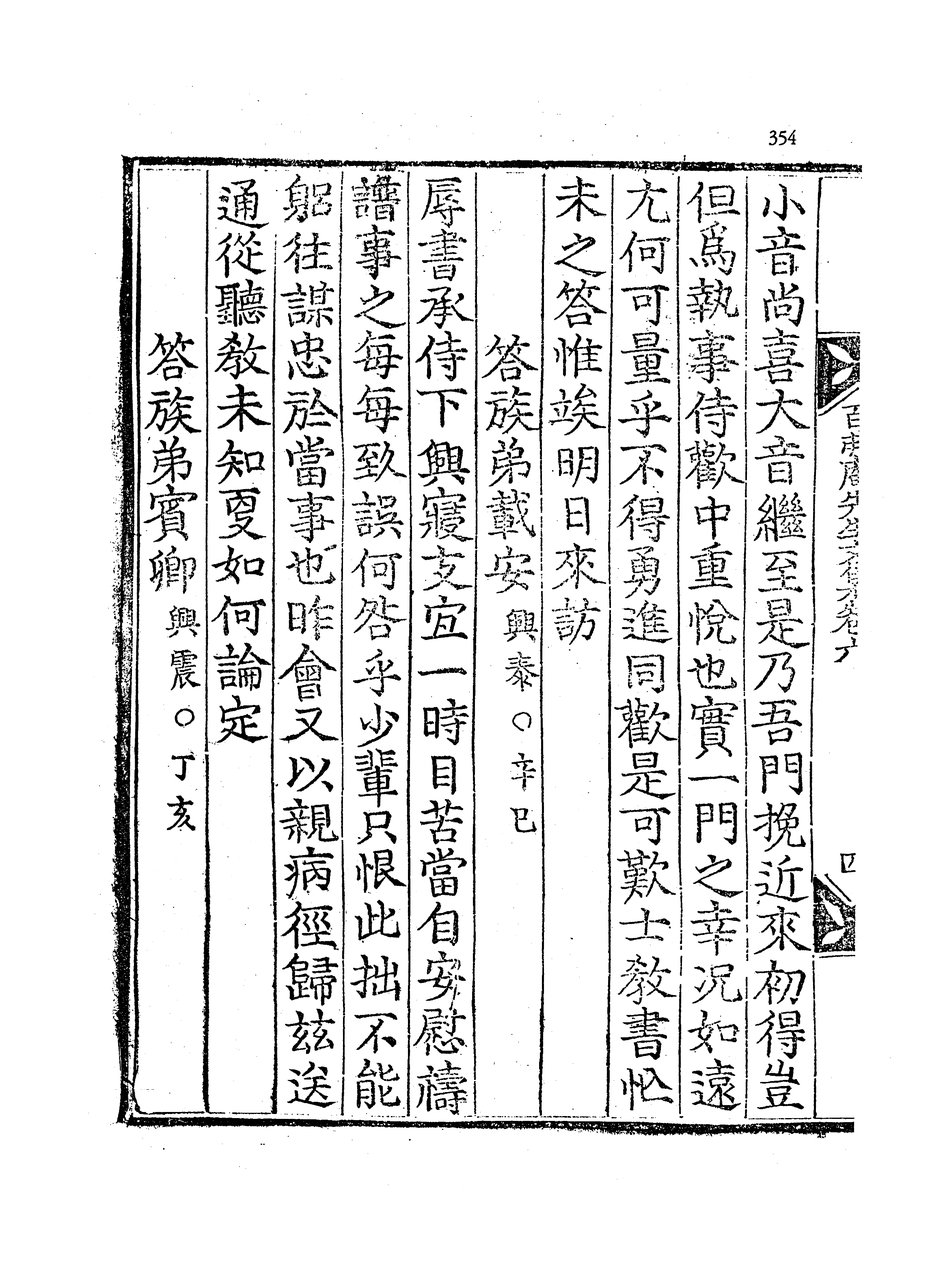 354
小音尚喜大音繼至是乃吾門挽近來初得豈
但爲執事侍歡中重悅也實一門之幸况如遠
尤何可量乎不得勇進同歡是可歎士敎書忙
未之答惟竢明日來訪
答族弟載安 興泰○辛巳
辱書承侍下興寢支宜一時目苦當自安慰禱
譜事之每每致誤何咎乎少輩只恨此拙不能
躬往謀忠於當事也昨會又以親病徑歸玆送
通從聽敎未知更如何論定
答族弟賓卿 興震○丁亥
先生文集卷六
四